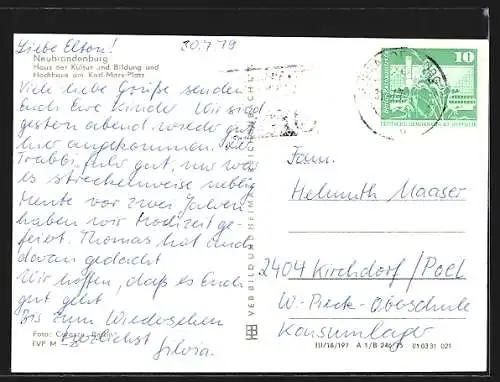 Liebe Eltern!
30.7.79
Neubrandenburg
Haus der Kultur und Bildung und
Hochhaus am Karl-Marx-Platz
Viele liebe Grüße senden
Euch Eure Kinder Wir sind
gestern abend wieder gut
hier angekommen. Der
Trabbi fuhr gut, nur war
es streckenweise neblig
Heute vor zwei Jahren
haben wir Hochzeit ge-
feiert. Thomas hat auch
daran gedacht
Wir hoffen, daß es Euch
gut geht
Bis zum Wiedersehen
herzlichst
Silvia.
Foto:
EVP M
VERB BILD UND HEIMAT
10
DEUTSCHE DEMOKRATISCHE REPUBLIK
Fam.
Helmuth Maaser
2404 Kirchdorf/Poel
W.-Pieck-Oberschule
Konsumlager
III/18/197 A 1/B 246/75 01 03 31 021